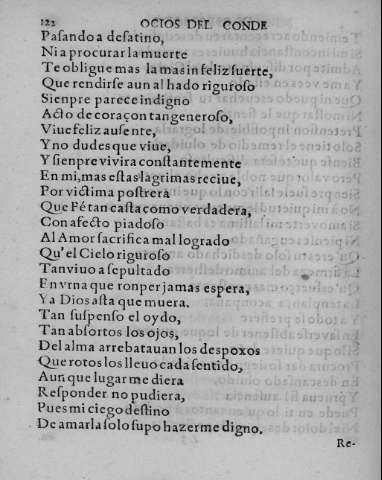 122 OCIOS DEL CONDE
Pasando a desatino,
Ni a procurar la muerte
Te obligue mas la mas infeliz suerte,
Que rendirse aun al hado riguroso
Sienpre parece indigno
Acto de coraçon tan generoso,
Viue feliz ausente,
Y no dudes que viue,
Y sienpre vivira constantemente
En mi, mas estas lagrimas reciue,
Por victima postrera
Que Fé tan casta como verdadera,
Con afecto piadoso
Al Amor sacrifica mal logrado
Qu'el Cielo riguroso
Tan viuo a sepultado
En vrna que ronper jamas espera,
Y a Dios asta que muera.
Tan suspenso el oydo,
Tan absortos los ojos,
Del alma arrebatauan los despoxos
Que rotos los lleuo cada sentido,
Aun que lugar me diera
Responder no pudiera,
Pues mi ciego destino
De amarla solo supo hazerme digno.
Re-